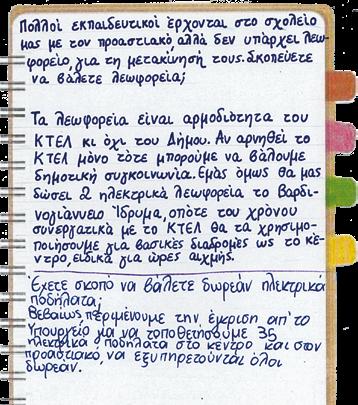 Πολλοί εκπαιδευτικοί έρχονται στο σχολείο
μας με τον προαστιακό, αλλά δεν υπάρχει λεω-
φορείο, για τη μετακίνησή τους. Σκοπεύετε
να βάλετε λεωφορεία;
Τα λεωφορεία είναι αρμοδιότητα του
ΚΤΕΛ κι όχι του Δήμου. Αν αρνηθεί το
ΚΤΕΛ μόνο τότε μπορούμε να βάλουμε
δημοτική συγκοινωνία. Εμάς όμως θα μας
δώσει 2 ηλεκτρικά λεωφορεία το Βαρδι-
νογιάννειο Ίδρυμα, οπότε του χρόνου
συνεργατικά με το ΚΤΕΛ θα τα χρησιμο-
ποιήσουμε για βασικές διαδρομές ως το κέ-
ντρο, ειδικά για ώρες αιχμής.
Έχετε σκοπό να βάλετε δωρεάν ηλεκτρικά
ποδήλατα;
Βεβαίως περιμένουμε την έγκριση απ'το
Υπουργείο για να τοποθετήσουμε 35
ηλεκτρικά ποδήλατα στο κέντρο και στον
προαστιακό, να εξυπηρετούνται όλοι
δωρεάν.